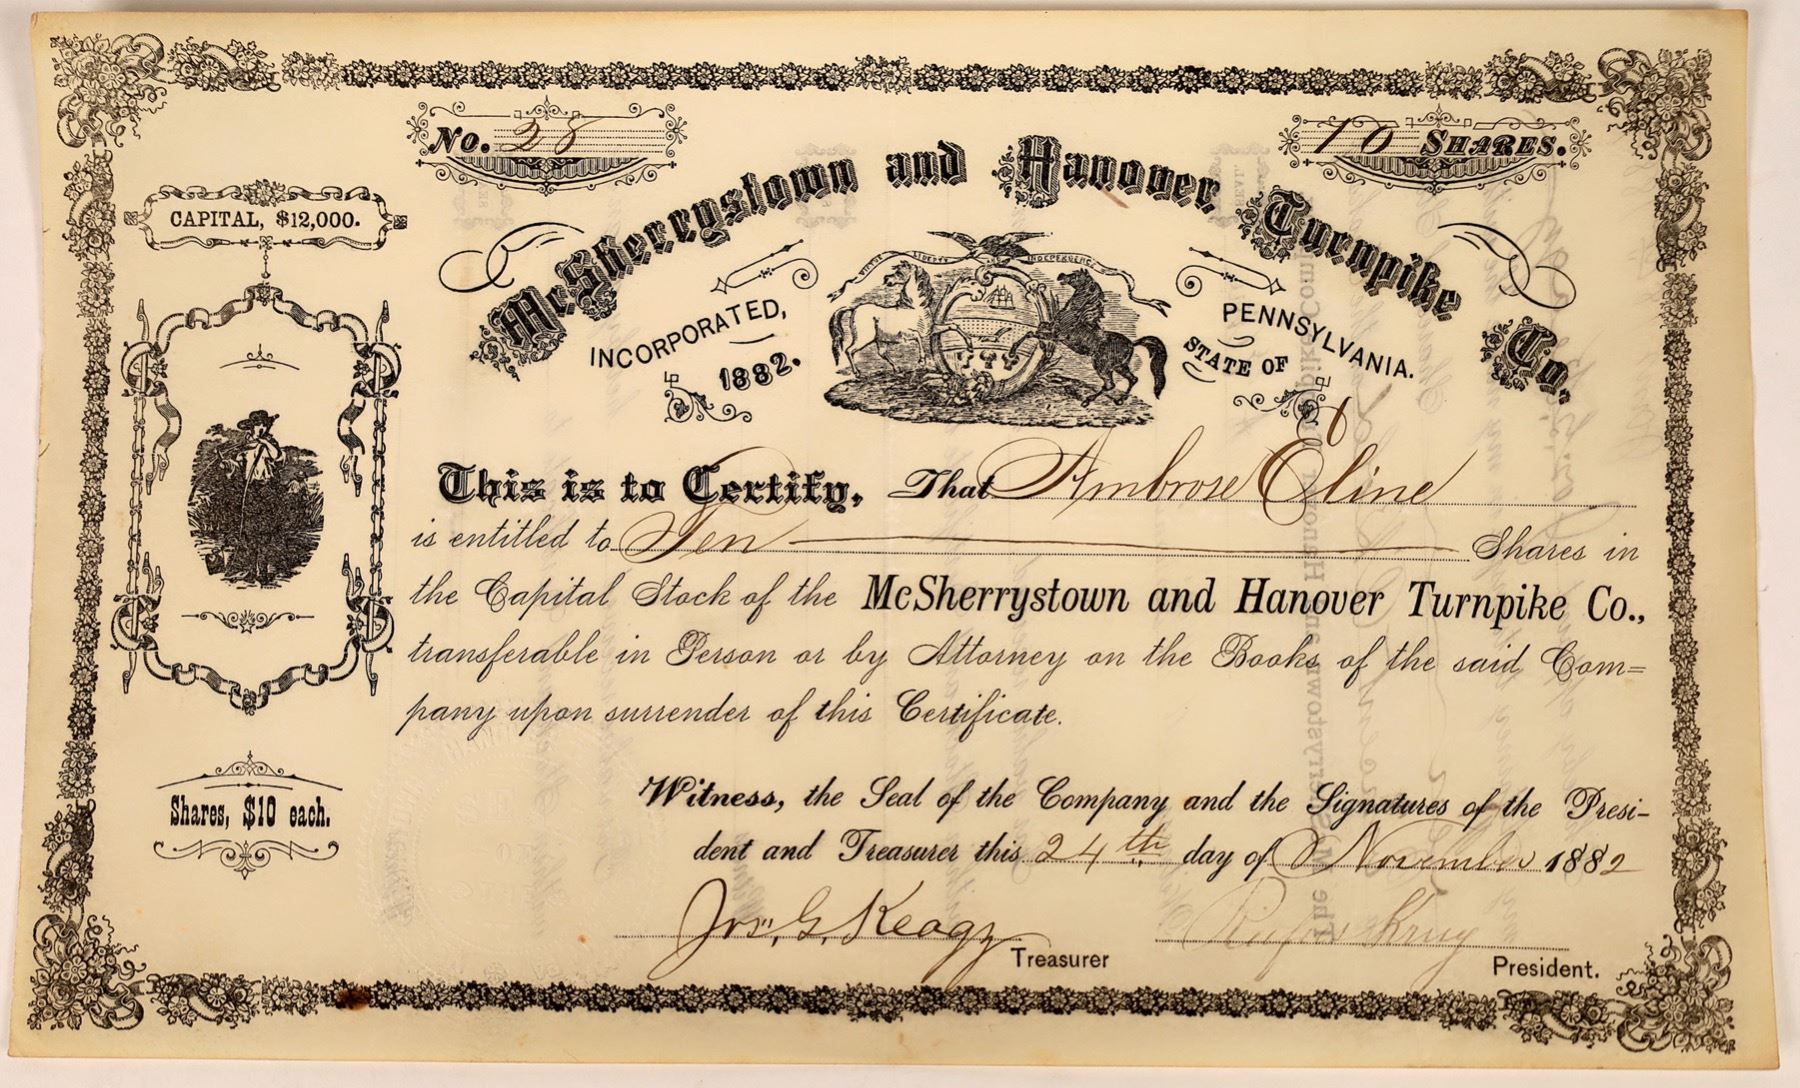 No. 28
10 SHARES.
McSherrystown and Hanover Turnpike Co.
CAPITAL, $12,000.
VIRTUE LIBERTY AND INDEPENDENCE
INCORPORATED,
1882.
STATE OF
PENNSYLVANIA.
This is to Certify, That Ambrose Eline
is entitled to Ten Shares in
the Capital Stock of the McSherrystown and Hanover Turnpike Co.,
transferable in Person or by Attorney on the Books of the said Com=
pany upon surrender of this Certificate.
Shares, $10 each.
Witness, the Seal of the Company and the Signatures of the Presi-
dent and Treasurer this 24th day of November 1882
Jos. G. Keagy Treasurer
Rufus Krug President.